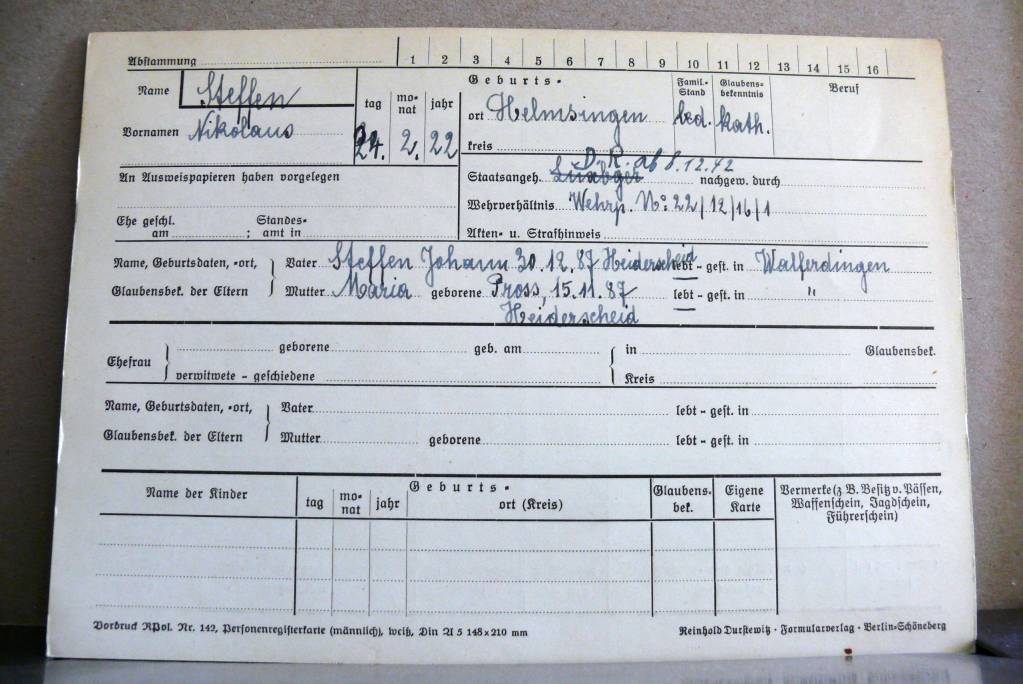 Abstammung 1 2 3 4 5 6 7 8 9 10 11 12 13 14 15 16
Name Steffen
Vornamen Nikolaus
tag monat jahr
24. 2. 22
Geburts-
ort Helmsingen
kreis
Famil.-Stand
led.
Glaubensbekenntnis
kath.
Beruf
An Ausweispapieren haben vorgelegen
D.R. ab 8.12.42
Staatsangeh. Luxbger nachgew. durch
Wehrverhältnis Wehrp. No: 22/12/16/1
Ehe geschl. Standes-
am ; amt in
Akten- u. Strafhinweis
Name, Geburtsdaten, -ort, Vater Steffen Johann 30.12.87 Heiderscheid lebt - gest. in Walferdingen
Glaubensbek. der Eltern Mutter Maria geborene Pross, 15.11.87 lebt - gest. in "
Heiderscheid
Ehefrau geborene geb. am in Glaubensbek.
verwitwete - geschiedene Kreis
Name, Geburtsdaten, -ort, Vater lebt - gest. in
Glaubensbek. der Eltern Mutter geborene lebt - gest. in
Name der Kinder
Geburts-
tag monat jahr ort (Kreis)
Glaubens-
bek.
Eigene
Karte
Vermerke (z. B. Besitz v. Pässen,
Waffenschein, Jagdschein,
Führerschein)
Vordruck RPol. Nr. 142, Personenregisterkarte (männlich), weiß, Din A 5 148x210 mm
Reinhold Durstewitz · Formularverlag · Berlin-Schöneberg